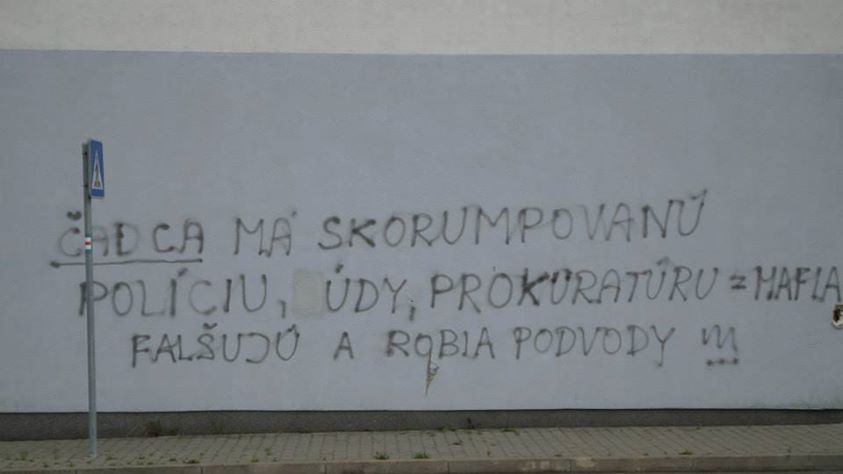 ČADCA MÁ SKORUMPOVANÚ
POLÍCIU, ÚDY, PROKURATÚRU = MAFIA
FALŠUJÚ A ROBIA PODVODY !!!